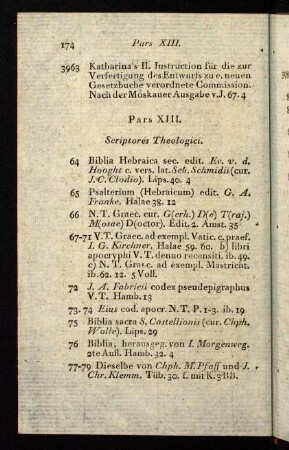 174 Pars XIII.
3963 Katharina's II. Instruction für die zur
Verfertigung des Entwurfs zu e. neuen
Gesetzbuche verordnete Commission.
Nach der Moskauer Ausgabe v.J. 67. 4
Pars XIII.
Scriptores Theologici.
64 Biblia Hebraica sec. edit. Ev. v. d.
Hooght c. vers. lat. Seb. Schmidii (cur.
J. C. Clodio). Lips. 40. 4
65 Psalterium (Hebraicum) edit. G. A.
Franke. Halae 38. 12
66 N. T. Graec. cur. G(erh.) D(e) T(raj.)
M(osae) D(octor). Edit. 2. Amst. 35
67-71 V. T. Graec. ad exempl. Vatic. c. praef.
I. G. Kirchner, Halae 59. 60. b) libri
apocryphi V. T. denuo recensiti. ib. 49.
c) N. T. Graec. ad exempl. Mastricht.
ib. 62. 12. 5 Voll.
72 J. A. Fabricii codex pseudepigraphus
V. T. Hamb. 13
73. 74 Eius cod. apocr. N. T. P. 1-3. ib. 19
75 Biblia sacra S. Castellionis (cur. Chph.
Wolle). Lips. 29
76 Biblia, herausgeg. von I. Morgenweg.
2te Aufl. Hamb. 32. 4
77-79 Dieselbe von Chph. M. Pfaff und J.
Chr. Klemm. Tüb. 30. f. mit K. 3 BB.